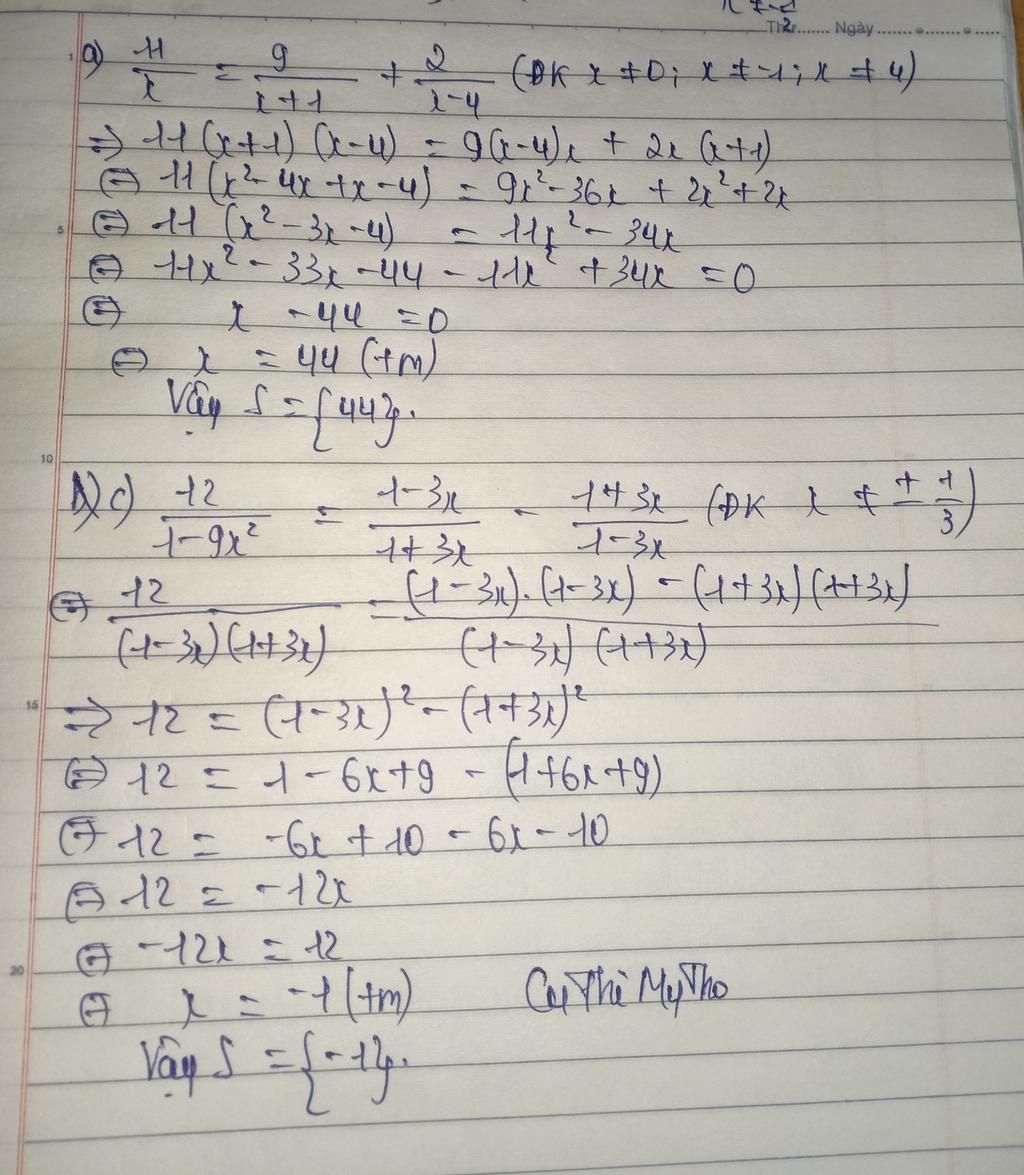 Thứ....... Ngày ....... ....... .....
a) 11/x = 9/(x+1) + 2/(x-4) (ĐK x ≠ 0; x ≠ -1; x ≠ 4)
=> 11 (x+1) (x-4) = 9(x-4)x + 2x (x+1)
<=> 11 (x² - 4x + x - 4) = 9x² - 36x + 2x² + 2x
<=> 11 (x² - 3x - 4) = 11x² - 34x
<=> 11x² - 33x - 44 - 11x² + 34x = 0
<=> x - 44 = 0
<=> x = 44 (tm)
Vậy S = {44}.
c) 12/(1-9x²) = (1-3x)/(1+3x) - (1+3x)/(1-3x) (ĐK x ≠ ± 1/3)
<=> 12/((1-3x)(1+3x)) = ((1-3x).(1-3x) - (1+3x)(1+3x))/((1-3x)(1+3x))
=> 12 = (1-3x)² - (1+3x)²
<=> 12 = 1 - 6x + 9 - (1+6x+9)
<=> 12 = -6x + 10 - 6x - 10
<=> 12 = -12x
<=> -12x = 12
<=> x = -1 (tm)
Cụ Thi Mỹ Tho
Vậy S = {-1}.
5
10
15
20